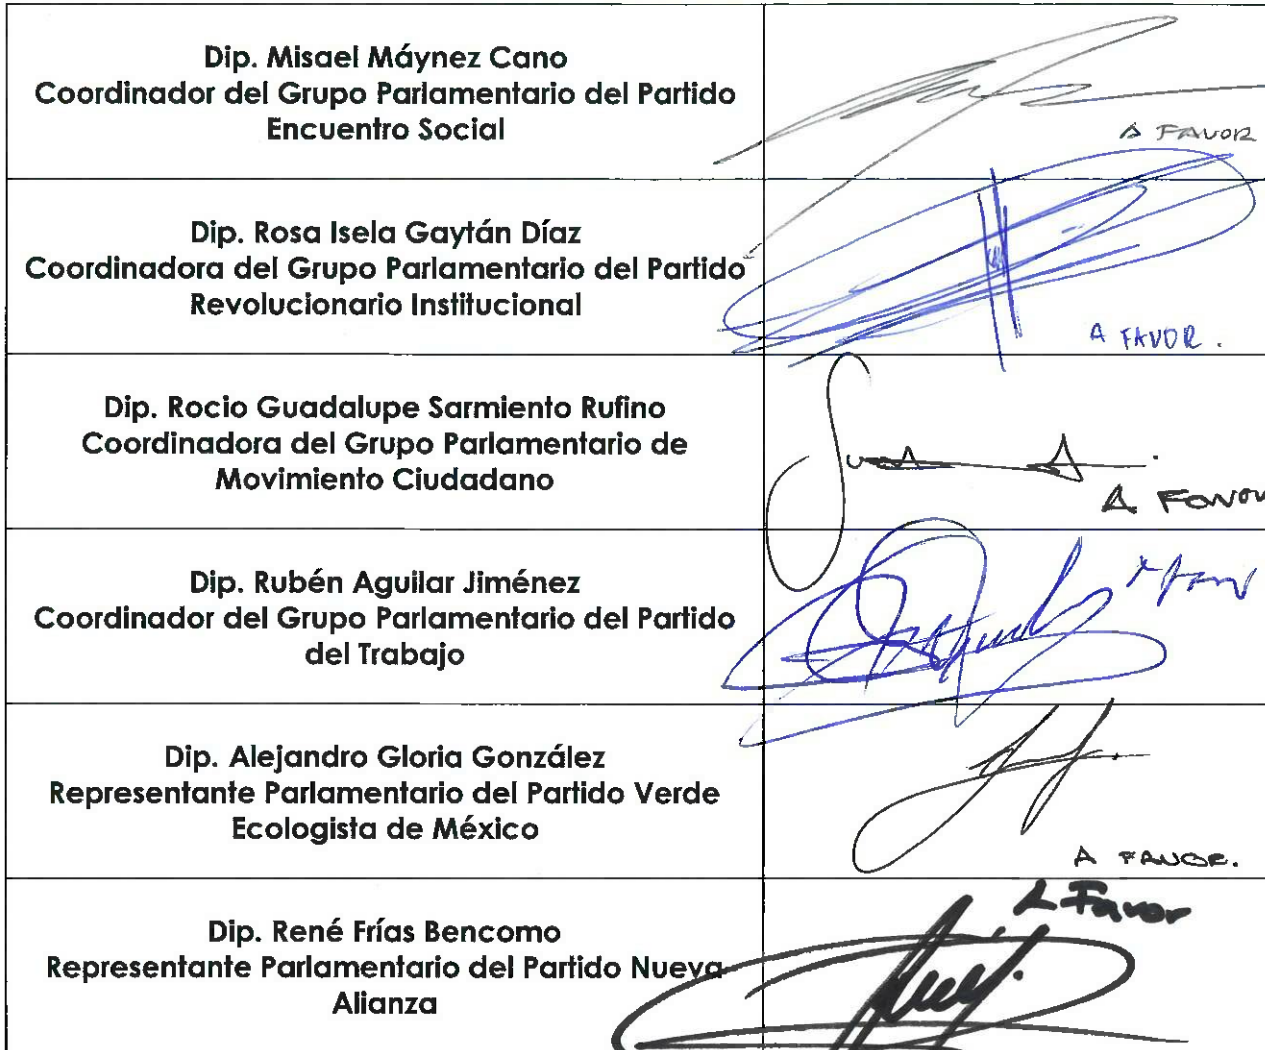 Dip. Misael Máynez Cano
Coordinador del Grupo Parlamentario del Partido
Encuentro Social
A FAVOR
Dip. Rosa Isela Gaytán Díaz
Coordinadora del Grupo Parlamentario del Partido
Revolucionario Institucional
A FAVOR.
Dip. Rocio Guadalupe Sarmiento Rufino
Coordinadora del Grupo Parlamentario de
Movimiento Ciudadano
A FAVOR
Dip. Rubén Aguilar Jiménez
Coordinador del Grupo Parlamentario del Partido
del Trabajo
Dip. Alejandro Gloria González
Representante Parlamentario del Partido Verde
Ecologista de México
A FAVOR.
A Favor
Dip. René Frías Bencomo
Representante Parlamentario del Partido Nueva
Alianza